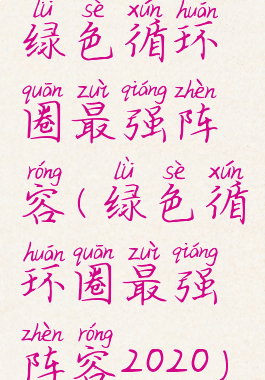 lǜ sè xún huán
绿色循环
quān zuì qiáng zhèn
圈最强阵
róng lǜ sè xún
容(绿色循
huán quān zuì qiáng
环圈最强
zhèn róng
阵容2020)